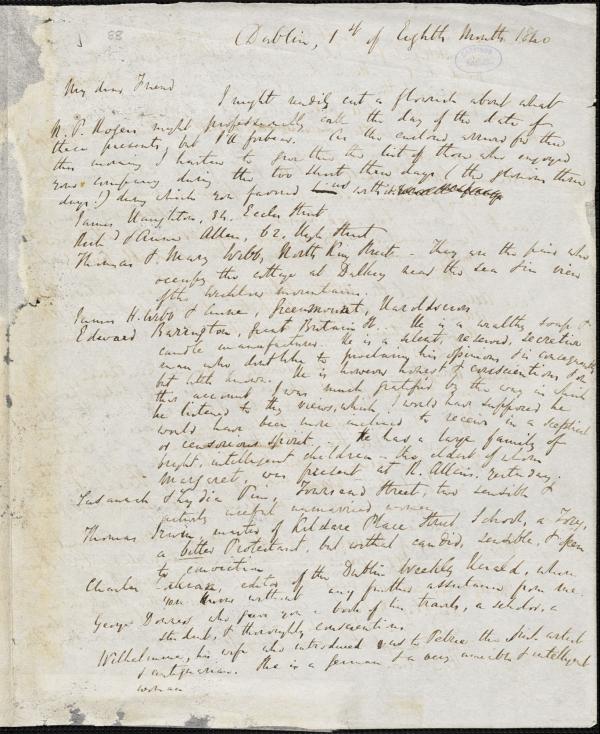 88
(Dublin, 1st of Eighth Month 1840
My dear Friend
I might readily cut a flourish about what
N. P. Rogers might professionally call the day of the date of
these presents, but I'll forbear. As the enclosed arrived for thee
this morning I hasten to give thee the list of those who enjoyed
your company during the too short three days (the glorious three
days!) during which you favored us with
James Haughton, 34 Eccles Street
Richd & Anne Allen, 62 High Street
Thomas & Mary Webb, North King Street - They are the pair who
occupy the cottage at Dalkey near the sea & in view
of the Wicklow mountains.
James H. Webb & Anne, Greenmount, Harolds cross
Edward Barrington, Great Britain St. - He is a wealthy soap &
candle manufacturer. He is a silent, reserved, secretive
man who dont like to proclaim his opinions & is consequently
but little known. He is however honest & conscientious & on
this account I was much gratified by the way in which
he listened to thy views, which I would have supposed he
would have been more inclined to receive in a sceptical
or censorious spirit. He has a large family of
bright, intelligent children - the eldest of whom
Margaret, was present at R. Allens yesterday.
Susannah & Lydia Pim, Townsend Street, two sensible &
actively useful unmarried women
Thomas Irwin, master of Kildare Place Street School, a Tory,
a bitter Protestant, but withal candid, sensible, & open
to conviction
Charles editor of the Dublin Weekly Herald, whom
you know without any further assistance from me.
George Downes who gave you a book of his travels, a scholar, a
student, & thoroughly conscientious.
Wilhelmina, his wife who introduced us to Petrie the Irish artist
& antiquarian. She is a german & a very amiable & intelligent
woman